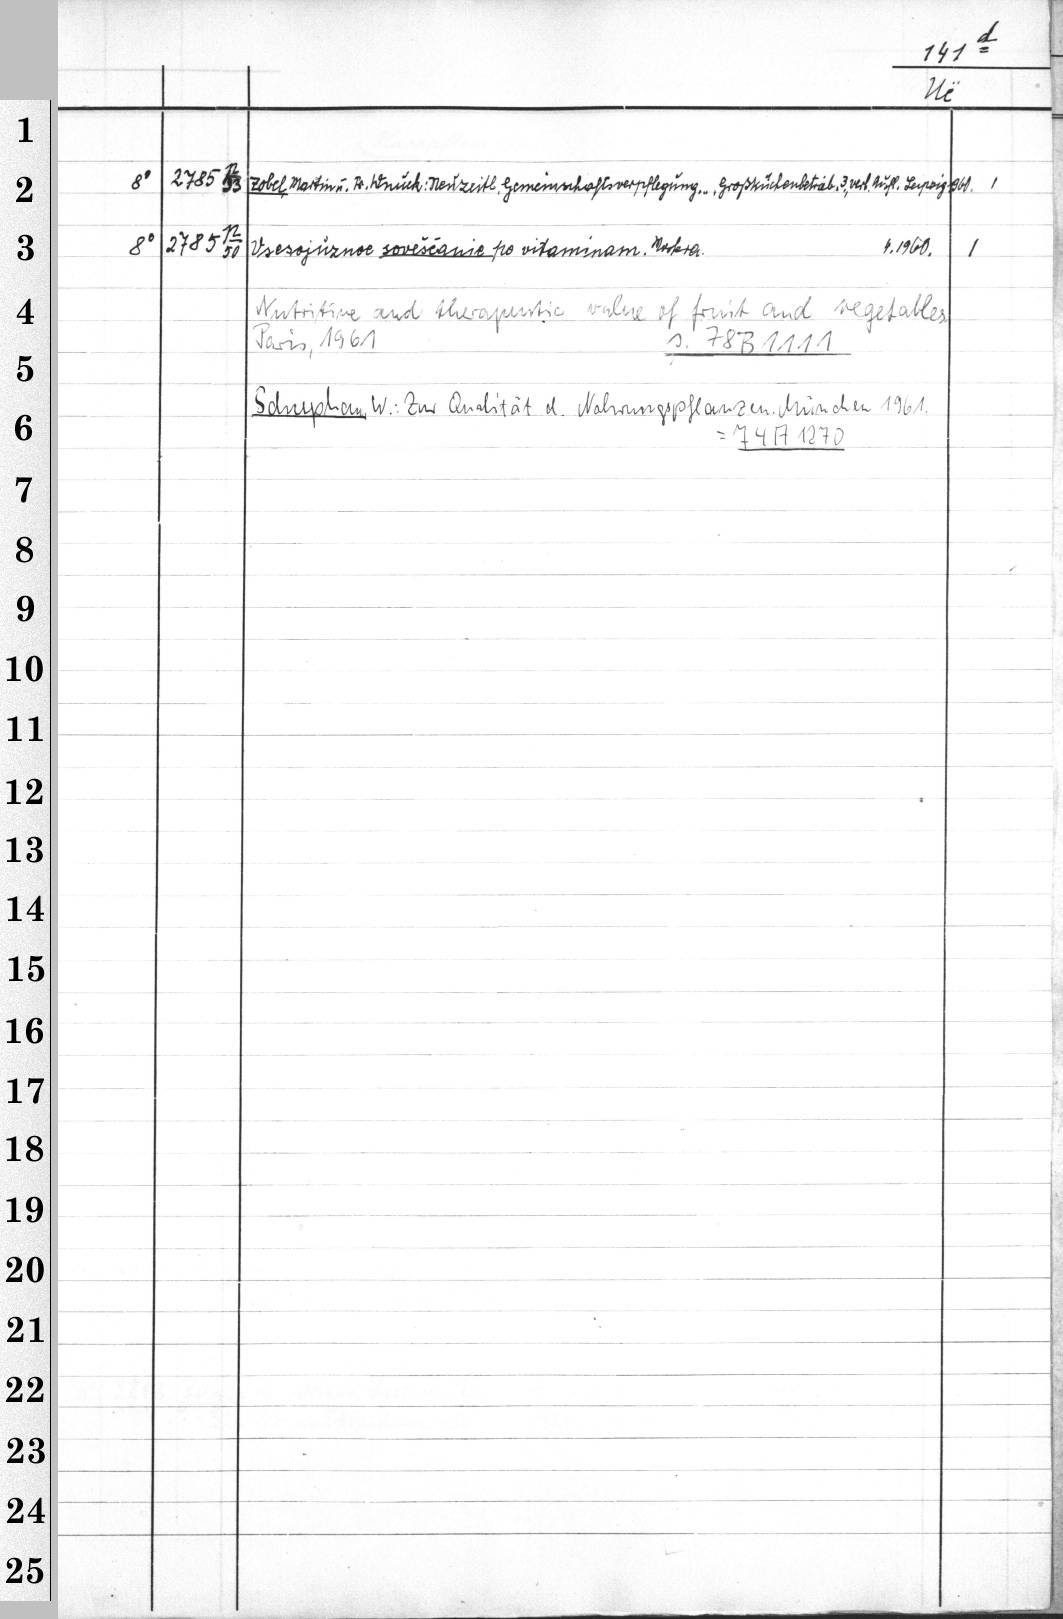 141 d
Uë
1
2 8° 2785 n/53 Zobel, Martin u. Fr. Wnuck: Neuzeitl. Gemeinschaftsverpflegung.., Großküchenbetrieb. 3., verb. Aufl. Leipzig 1961. 1
3 8° 2785 n/50 Vsesojuznoe soveščanie po vitaminam. Moskva. 4.1960. 1
4 Nutritive and therapeutic value of fruit and vegetables
Paris, 1961 s. 78B1111
5
Schuphan, W.: Zur Qualität d. Nahrungspflanzen. München 1961.
6 = 74 A 1270
7
8
9
10
11
12
13
14
15
16
17
18
19
20
21
22
23
24
25